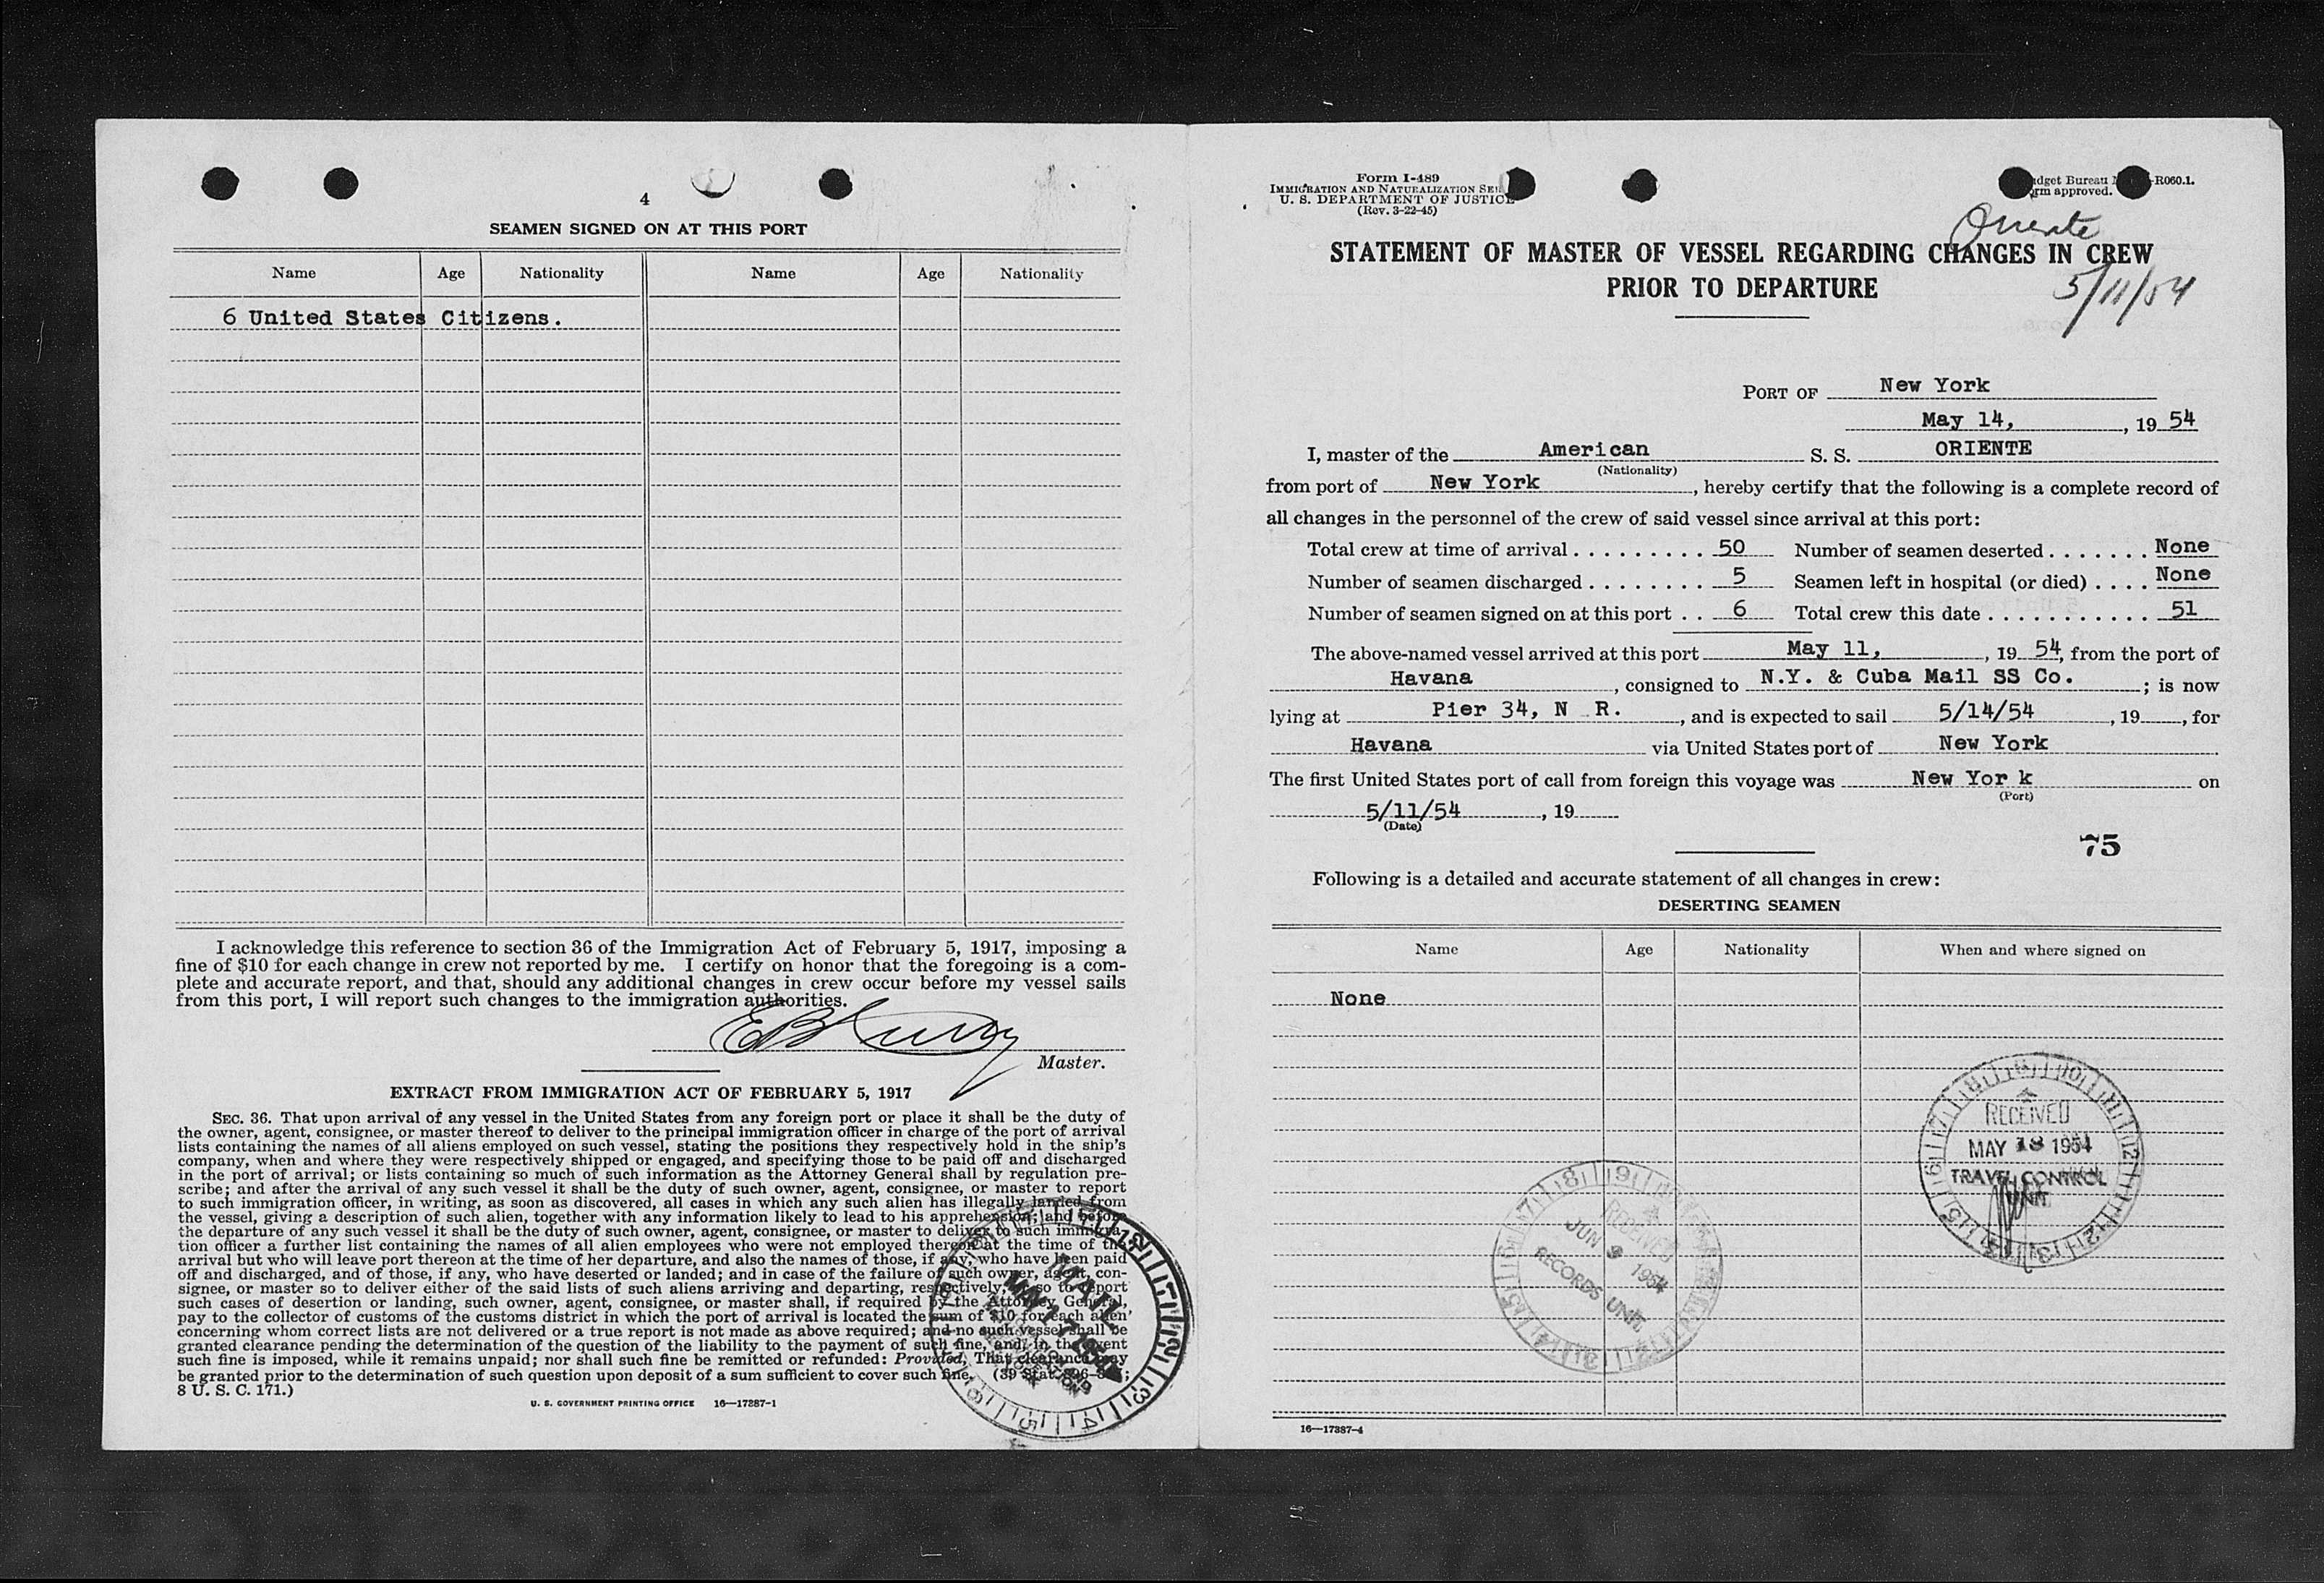 4
SEAMEN SIGNED ON AT THIS PORT
Name Age Nationality Name Age Nationality
6 United States Citizens.
I acknowledge this reference to section 36 of the Immigration Act of February 5, 1917, imposing a
fine of $10 for each change in crew not reported by me. I certify on honor that the foregoing is a com-
plete and accurate report, and that, should any additional changes in crew occur before my vessel sails
from this port, I will report such changes to the immigration authorities.
Master.
EXTRACT FROM IMMIGRATION ACT OF FEBRUARY 5, 1917
SEC. 36. That upon arrival of any vessel in the United States from any foreign port or place it shall be the duty of
the owner, agent, consignee, or master thereof to deliver to the principal immigration officer in charge of the port of arrival
lists containing the names of all aliens employed on such vessel, stating the positions they respectively hold in the ship's
company, when and where they were respectively shipped or engaged, and specifying those to be paid off and discharged
in the port of arrival; or lists containing so much of such information as the Attorney General shall by regulation pre-
scribe; and after the arrival of any such vessel it shall be the duty of such owner, agent, consignee, or master to report
to such immigration officer, in writing, as soon as discovered, all cases in which any such alien has illegally landed from
the vessel, giving a description of such alien, together with any information likely to lead to his apprehension; and before
the departure of any such vessel it shall be the duty of such owner, agent, consignee, or master to deliver to such immigra-
tion officer a further list containing the names of all alien employees who were not employed thereon at the time of the
arrival but who will leave port thereon at the time of her departure, and also the names of those, if any, who have been paid
off and discharged, and of those, if any, who have deserted or landed; and in case of the failure of such owner, agent, con-
signee, or master so to deliver either of the said lists of such aliens arriving and departing, respectively, or so to report
such cases of desertion or landing, such owner, agent, consignee, or master shall, if required by the Attorney General,
pay to the collector of customs of the customs district in which the port of arrival is located the sum of $10 for each alien
concerning whom correct lists are not delivered or a true report is not made as above required; and no such vessel shall be
granted clearance pending the determination of the question of the liability to the payment of such fine, and, in the event
such fine is imposed, while it remains unpaid; nor shall such fine be remitted or refunded: Provided, That clearance may
be granted prior to the determination of such question upon deposit of a sum sufficient to cover such fine. (39 Stat.
8 U. S. C. 171.)
U. S. GOVERNMENT PRINTING OFFICE 16—17387-1
MAIL
MAY 17 1954
Form I-489
IMMIGRATION AND NATURALIZATION
U. S. DEPARTMENT OF JUSTICE
(Rev. 3-22-45)
Bureau -R060.1.
approved.
Oriente
STATEMENT OF MASTER OF VESSEL REGARDING CHANGES IN CREW
PRIOR TO DEPARTURE
5/11/54
PORT OF New York
May 14, , 19 54
I, master of the American S. S. ORIENTE
(Nationality)
from port of New York , hereby certify that the following is a complete record of
all changes in the personnel of the crew of said vessel since arrival at this port:
Total crew at time of arrival . . . . . . . . . 50 Number of seamen deserted . . . . . . . None
Number of seamen discharged . . . . . . . . 5 Seamen left in hospital (or died) . . . . None
Number of seamen signed on at this port . . 6 Total crew this date . . . . . . . . . . . 51
The above-named vessel arrived at this port May 11, , 19 54, from the port of
Havana , consigned to N.Y. & Cuba Mail SS Co. ; is now
lying at Pier 34, N R. , and is expected to sail 5/14/54 , 19 , for
Havana via United States port of New York
The first United States port of call from foreign this voyage was New Yor k on
(Port)
5/11/54 , 19
(Date)
75
Following is a detailed and accurate statement of all changes in crew:
DESERTING SEAMEN
Name Age Nationality When and where signed on
None
RECEIVED
MAY 18 1954
TRAVEL CONTROL
UNIT
RECEIVED
JUN 9 1954
RECORDS UNIT
16—17387-4